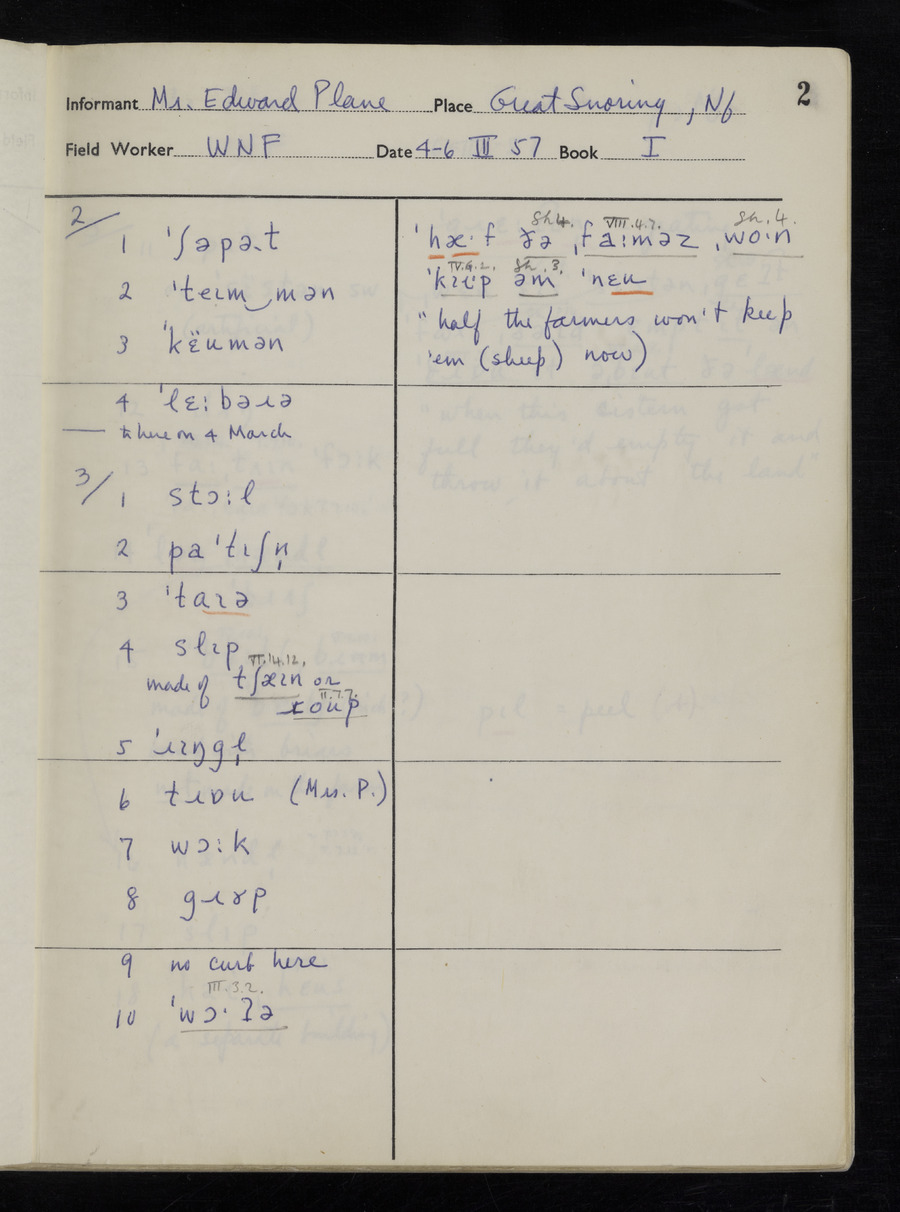 2
Informant Mr. Edward Plane Place Great Snoring, Nf
Field Worker WNF Date 4-6 III 57 Book I
2/
1 ˈʃəpəɹt
2 ˈteɪm‿mən
3 ˈkɛ̈ʉmən
4 ˈlɛːbəɹə
— to here on 4 March
3/
1 stɔːl
2 paˈtɪʃn̩
3 ˈtaɪə
4 slɪp
VI.14.12.
made of tʃæɪn or
II.7.7.
ɹoʉp
5 ˈɹɪŋgl̩
6 tɹɒʉ (Mrs. P.)
7 wɔːk
8 gɹɤp
9 no curb here
III.3.2.
10 ˈwɔˑʔə
Sh4. VIII.4.7. Sh.4.
ˈhæˑf ðə ˌfaːməz ˌwoˑn
IV.9.2. Sh.3.
ˈkɪiˑp əm ˈnɛʉ
"half the farmers won't keep
'em (sheep) now)